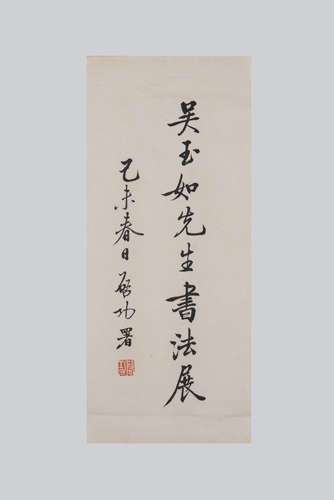 吴玉如先生書法展
乙未春日启功署